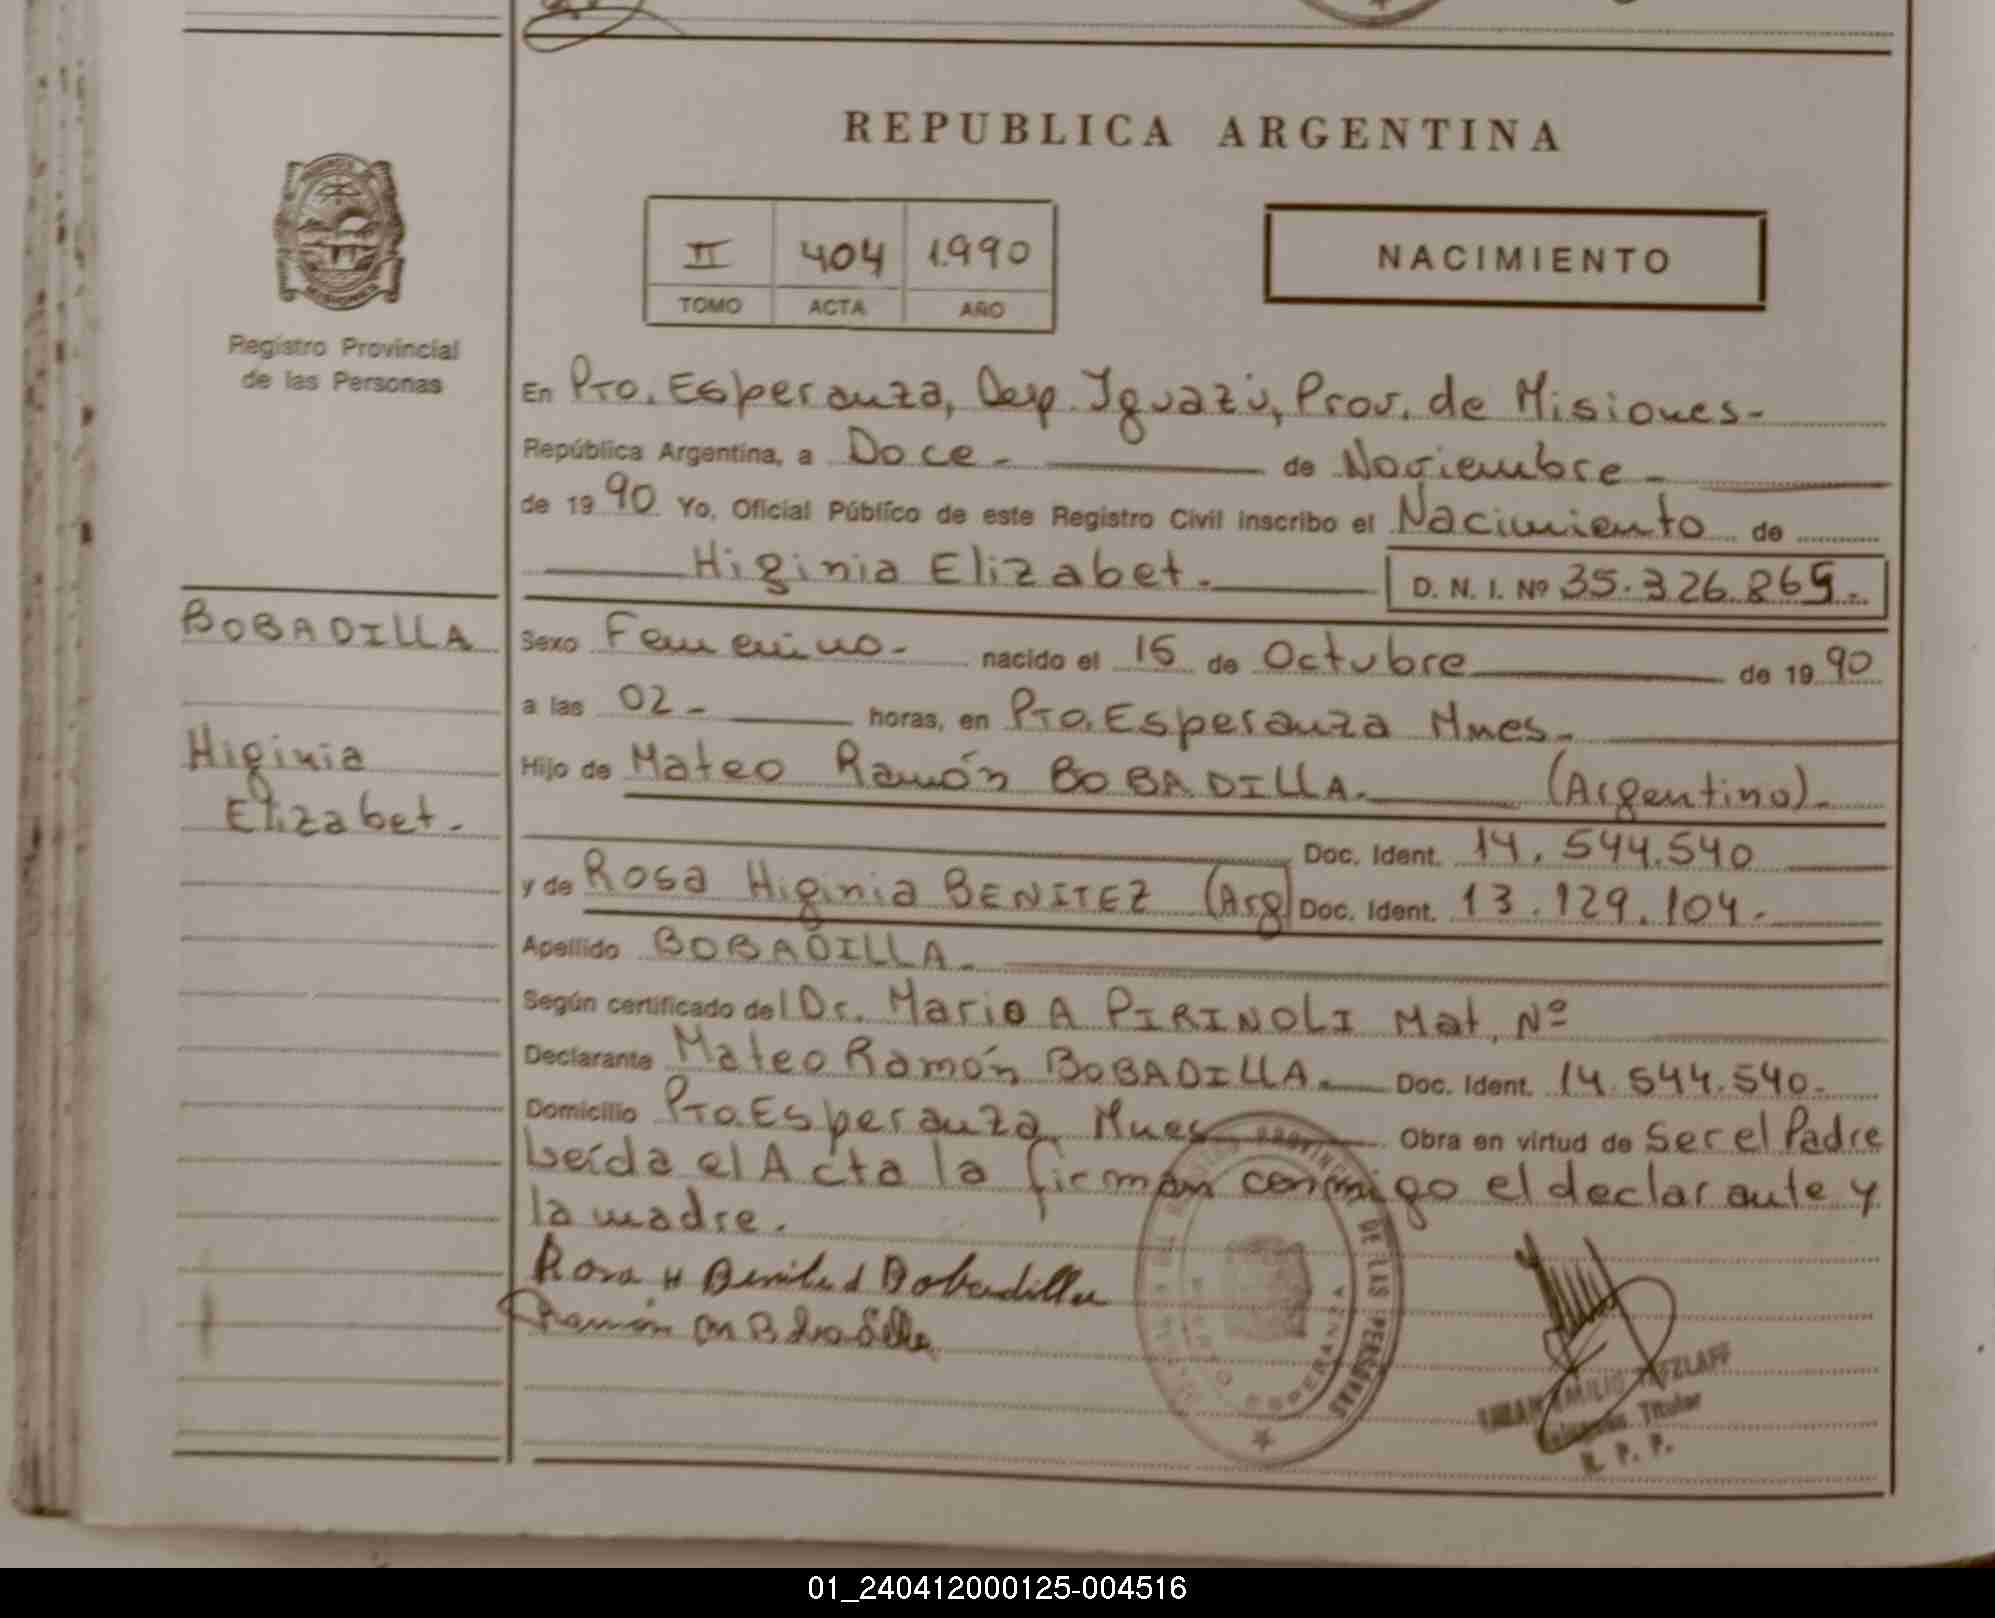 REPUBLICA ARGENTINA
II 404 1.990
TOMO ACTA AÑO
NACIMIENTO
MISIONES
Registro Provincial
de las Personas
En Pto. Esperanza, Dep. Iguazú, Prov. de Misiones-
República Argentina, a Doce - de Noviembre -
de 1990 Yo, Oficial Público de este Registro Civil inscribo el Nacimiento de
Higinia Elizabet.-
D. N. I. Nº 35.326.865.-
BOBADILLA
Higinia
Elizabet.-
Sexo Femenino.- nacido el 15 de Octubre de 1990
a las 02 - horas, en Pto. Esperanza Mnes.-
Hijo de Mateo Ramón BOBADILLA. (Argentino).-
Doc. Ident. 14.544.540
y de Rosa Higinia BENITEZ (Arg) Doc. Ident. 13.129.104.-
Apellido BOBADILLA.-
Según certificado del Dr. Mario A PIRINOLI Mat. Nº
Declarante Mateo Ramón BOBADILLA. Doc. Ident. 14.544.540.-
Domicilio Pto. Esperanza Mnes Obra en virtud de Ser el Padre
Leída el Acta la firman conmigo el declarante y
la madre.
Rosa H Benitez d Bobadilla
Ramón M Bobadilla
REGISTRO PROVINCIAL DE LAS PERSONAS
PUERTO ESPERANZA
EMILIO TETZLAFF
Titular
R. P. P.
01_240412000125-004516